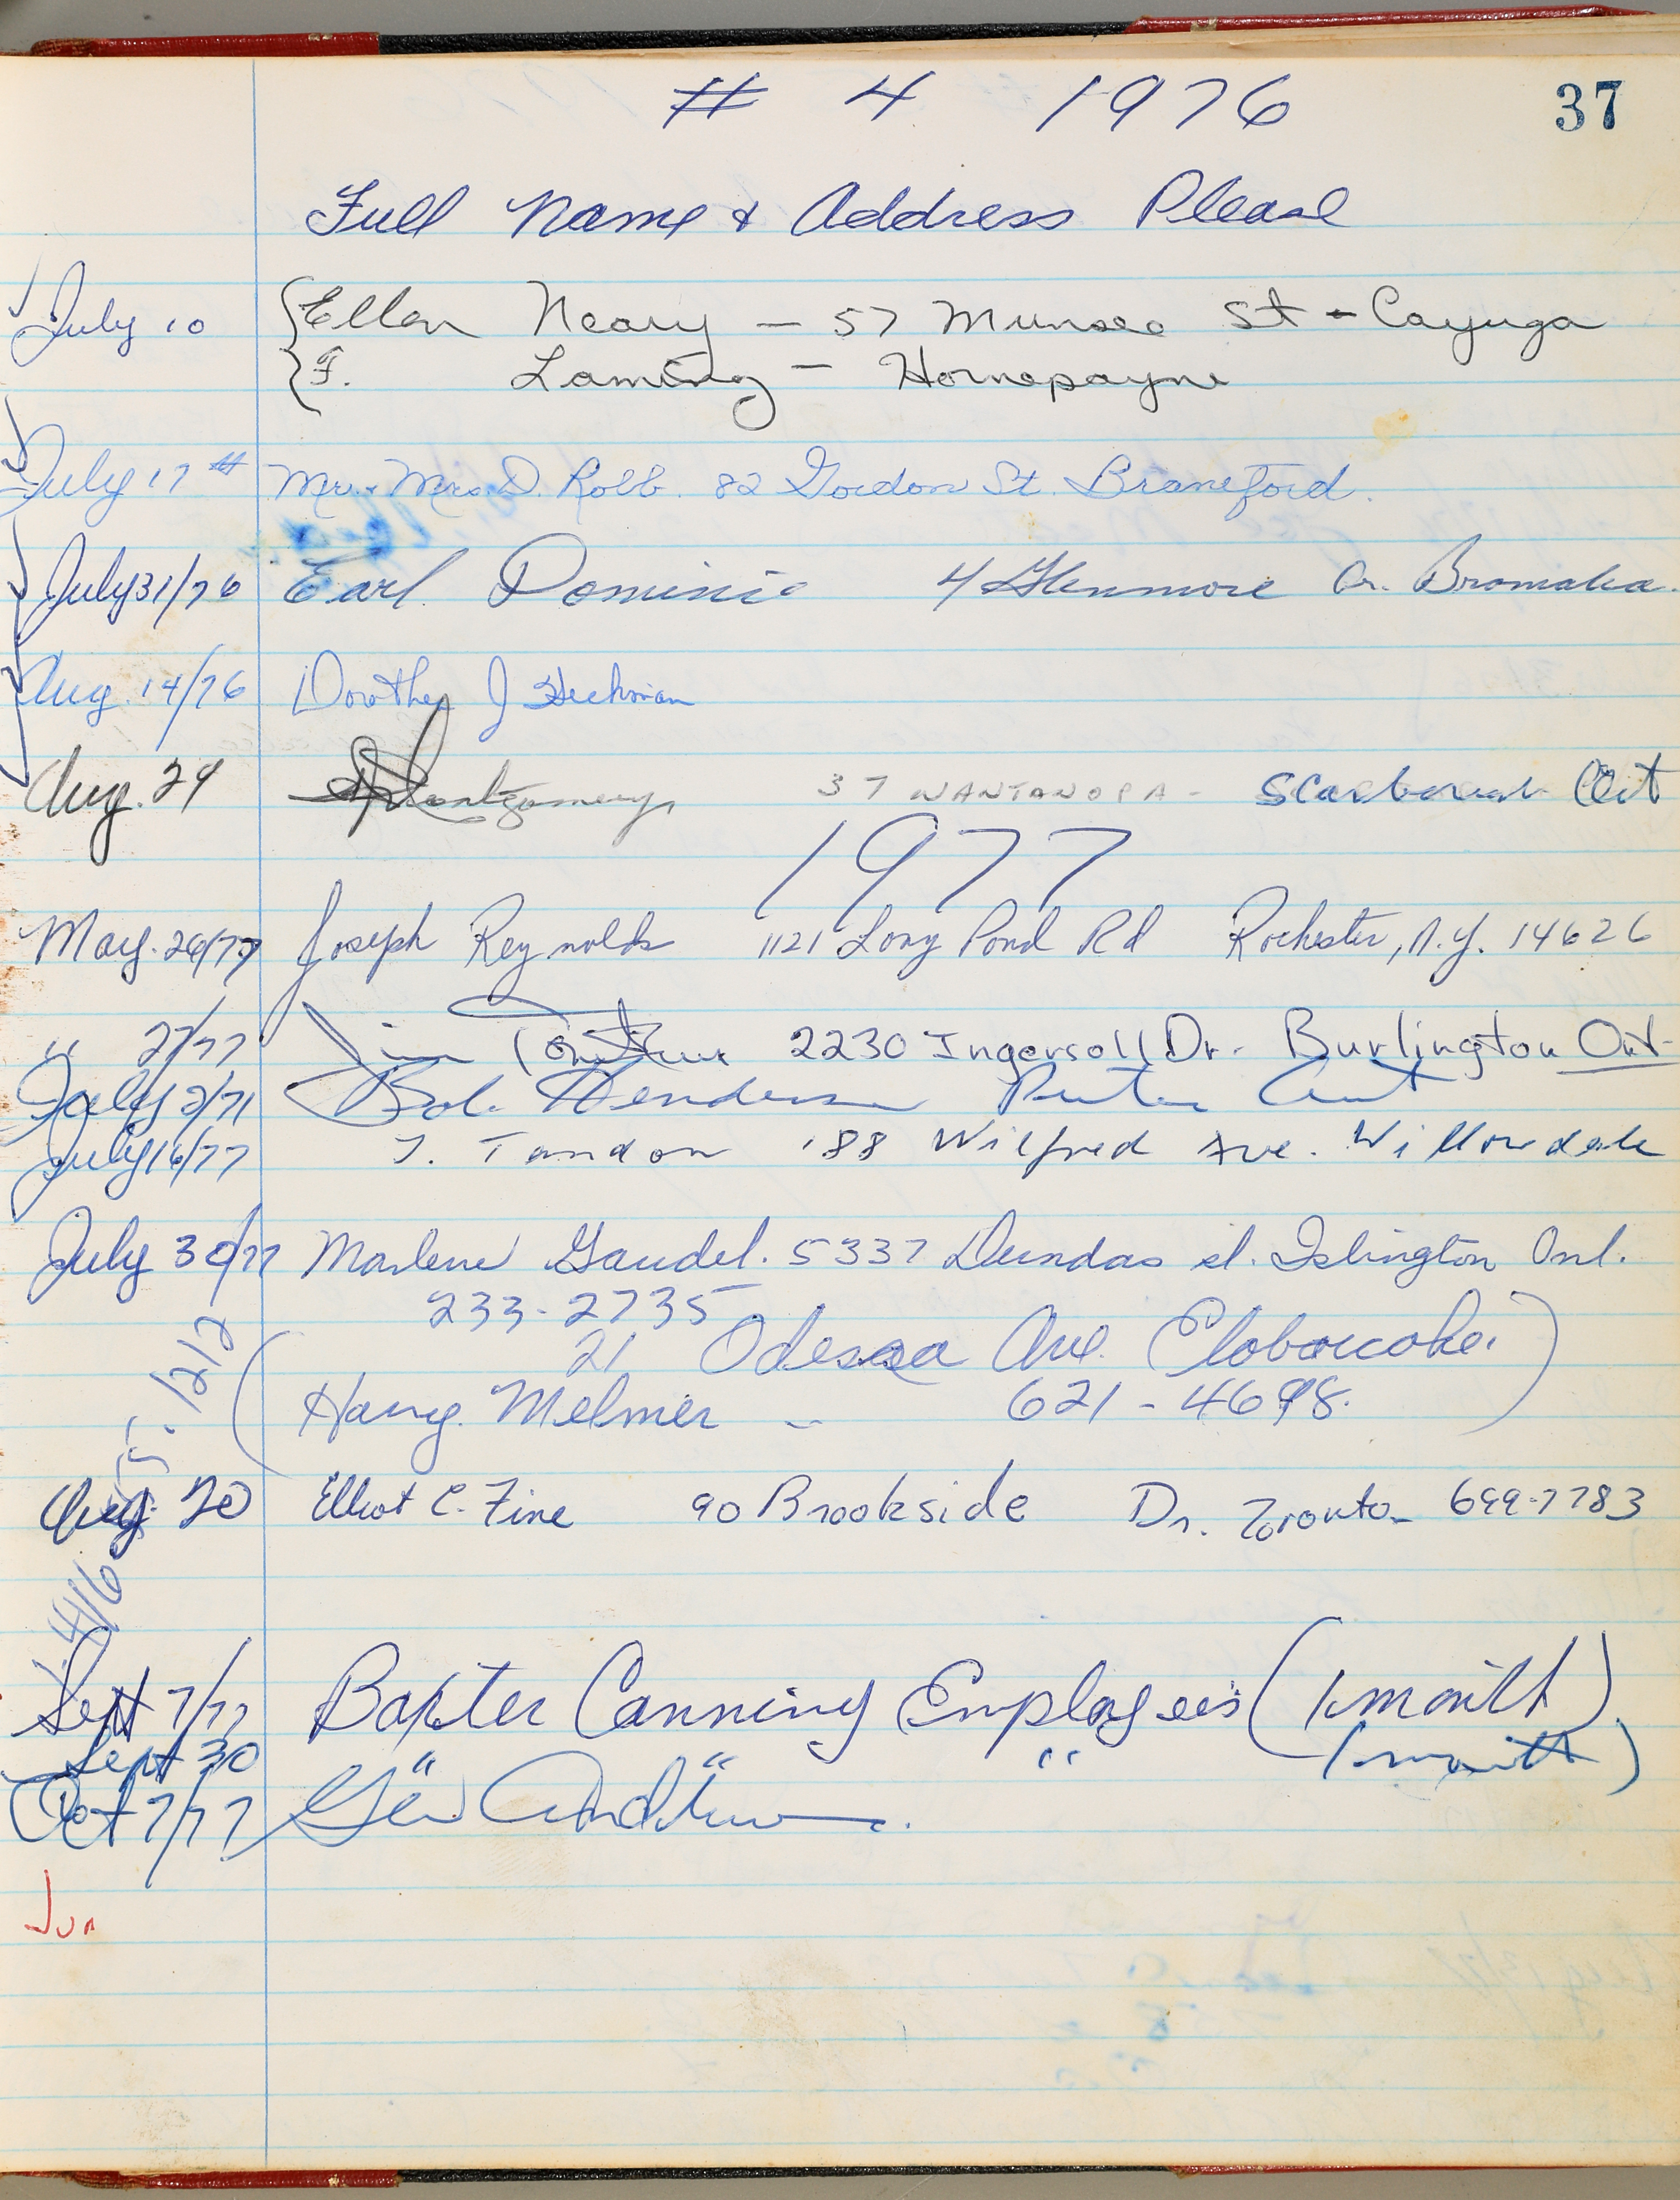 # 4 1976 37
Full Name & Address Please
July 10 Ellen Neary - 57 Munsee St - Cayuga
F. Laming - Hornepayne
July 17th Mr. & Mrs. D. Robb. 82 Gordon St. Brantford.
July 31/76 Earl Dominie 4 Glenmore Cr. Bramalea.
Aug. 14/76 Dorothy J Heckman
Aug. 29 Montgomery 37 WANTANOPA - Scarborough Ont
1977
May. 26/77 Joseph Reynolds 1121 Long Pond Rd Rochester, N.Y. 14626
" 27/77 Jim 2230 Ingersoll Dr. Burlington Ont.
July 2/77 Bob Henderson
July 16/77 T. Tandon 188 Wilfred Ave. Willowdale
July 30/77 Marlene Gaudet. 5337 Dundas st. Islington Ont.
233-2735
21 Odessa Ave. Etobicoke.
Harry Melmer - 621-4698.
Aug. 20 Elliot C. Fine 90 Brookside Dr. Toronto - 699-7783
Sept 7/77 Baxter Canning Employees (1 month)
Sept 30 " " " (1 month)
Oct 7/77
Jun